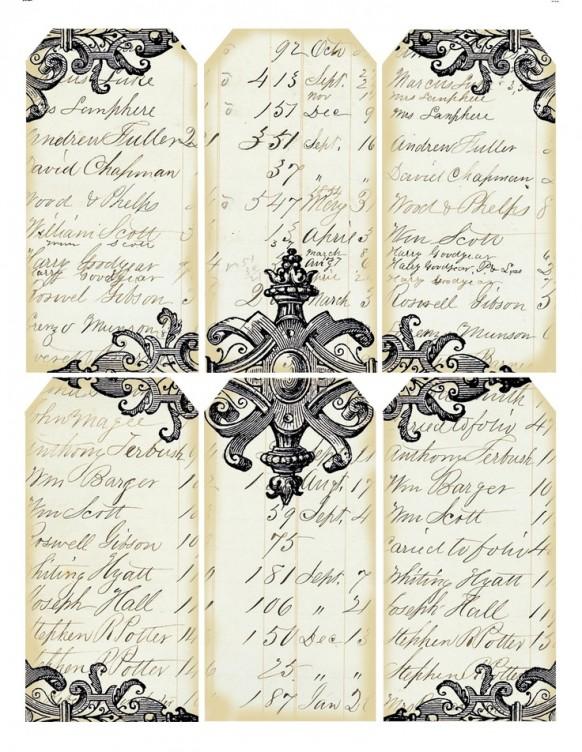 Luke
Lanphere
Andrew Fuller 2
David Chapman
Wood & Phelps
William Scott
Wm Scott
Harry Goodyear
Harry Goodyear
Roswel Gibson
Munson
92 Oct
413 Sept.
Nov
151 Dec 9
351 Sept. 16
37 "
547 May 31
13 April 3
March
March 3
Marcus
Mrs Lanphere
Mrs Lanphere
Andrew Fuller
David Chapman
Wood & Phelps 8
Wm Scott
Harry Goodyear
Harry Goodyear,
Harry Goodyear
Roswell Gibson 5
Munson 6
John Magee
Anthony Terbush
Wm Barger 10
Wm Scott 10
Roswell Gibson 10
Whiting Hyatt
Joseph Hall 1
Stephen R Potter 14
Stephen R Potter
Augt. 17
59 Sept. 4
75
181 Sept. 7
106 " 21
150 Dec 13
25 " "
187 Jan 2
Carried to folio 49
Anthony Terbush 1
Wm Barger 10
Wm Scott 1
Caried to folio 4
Whiting Hyatt 1
Joseph Hall 1
Stephen R Potter 13
Stephen R Potter